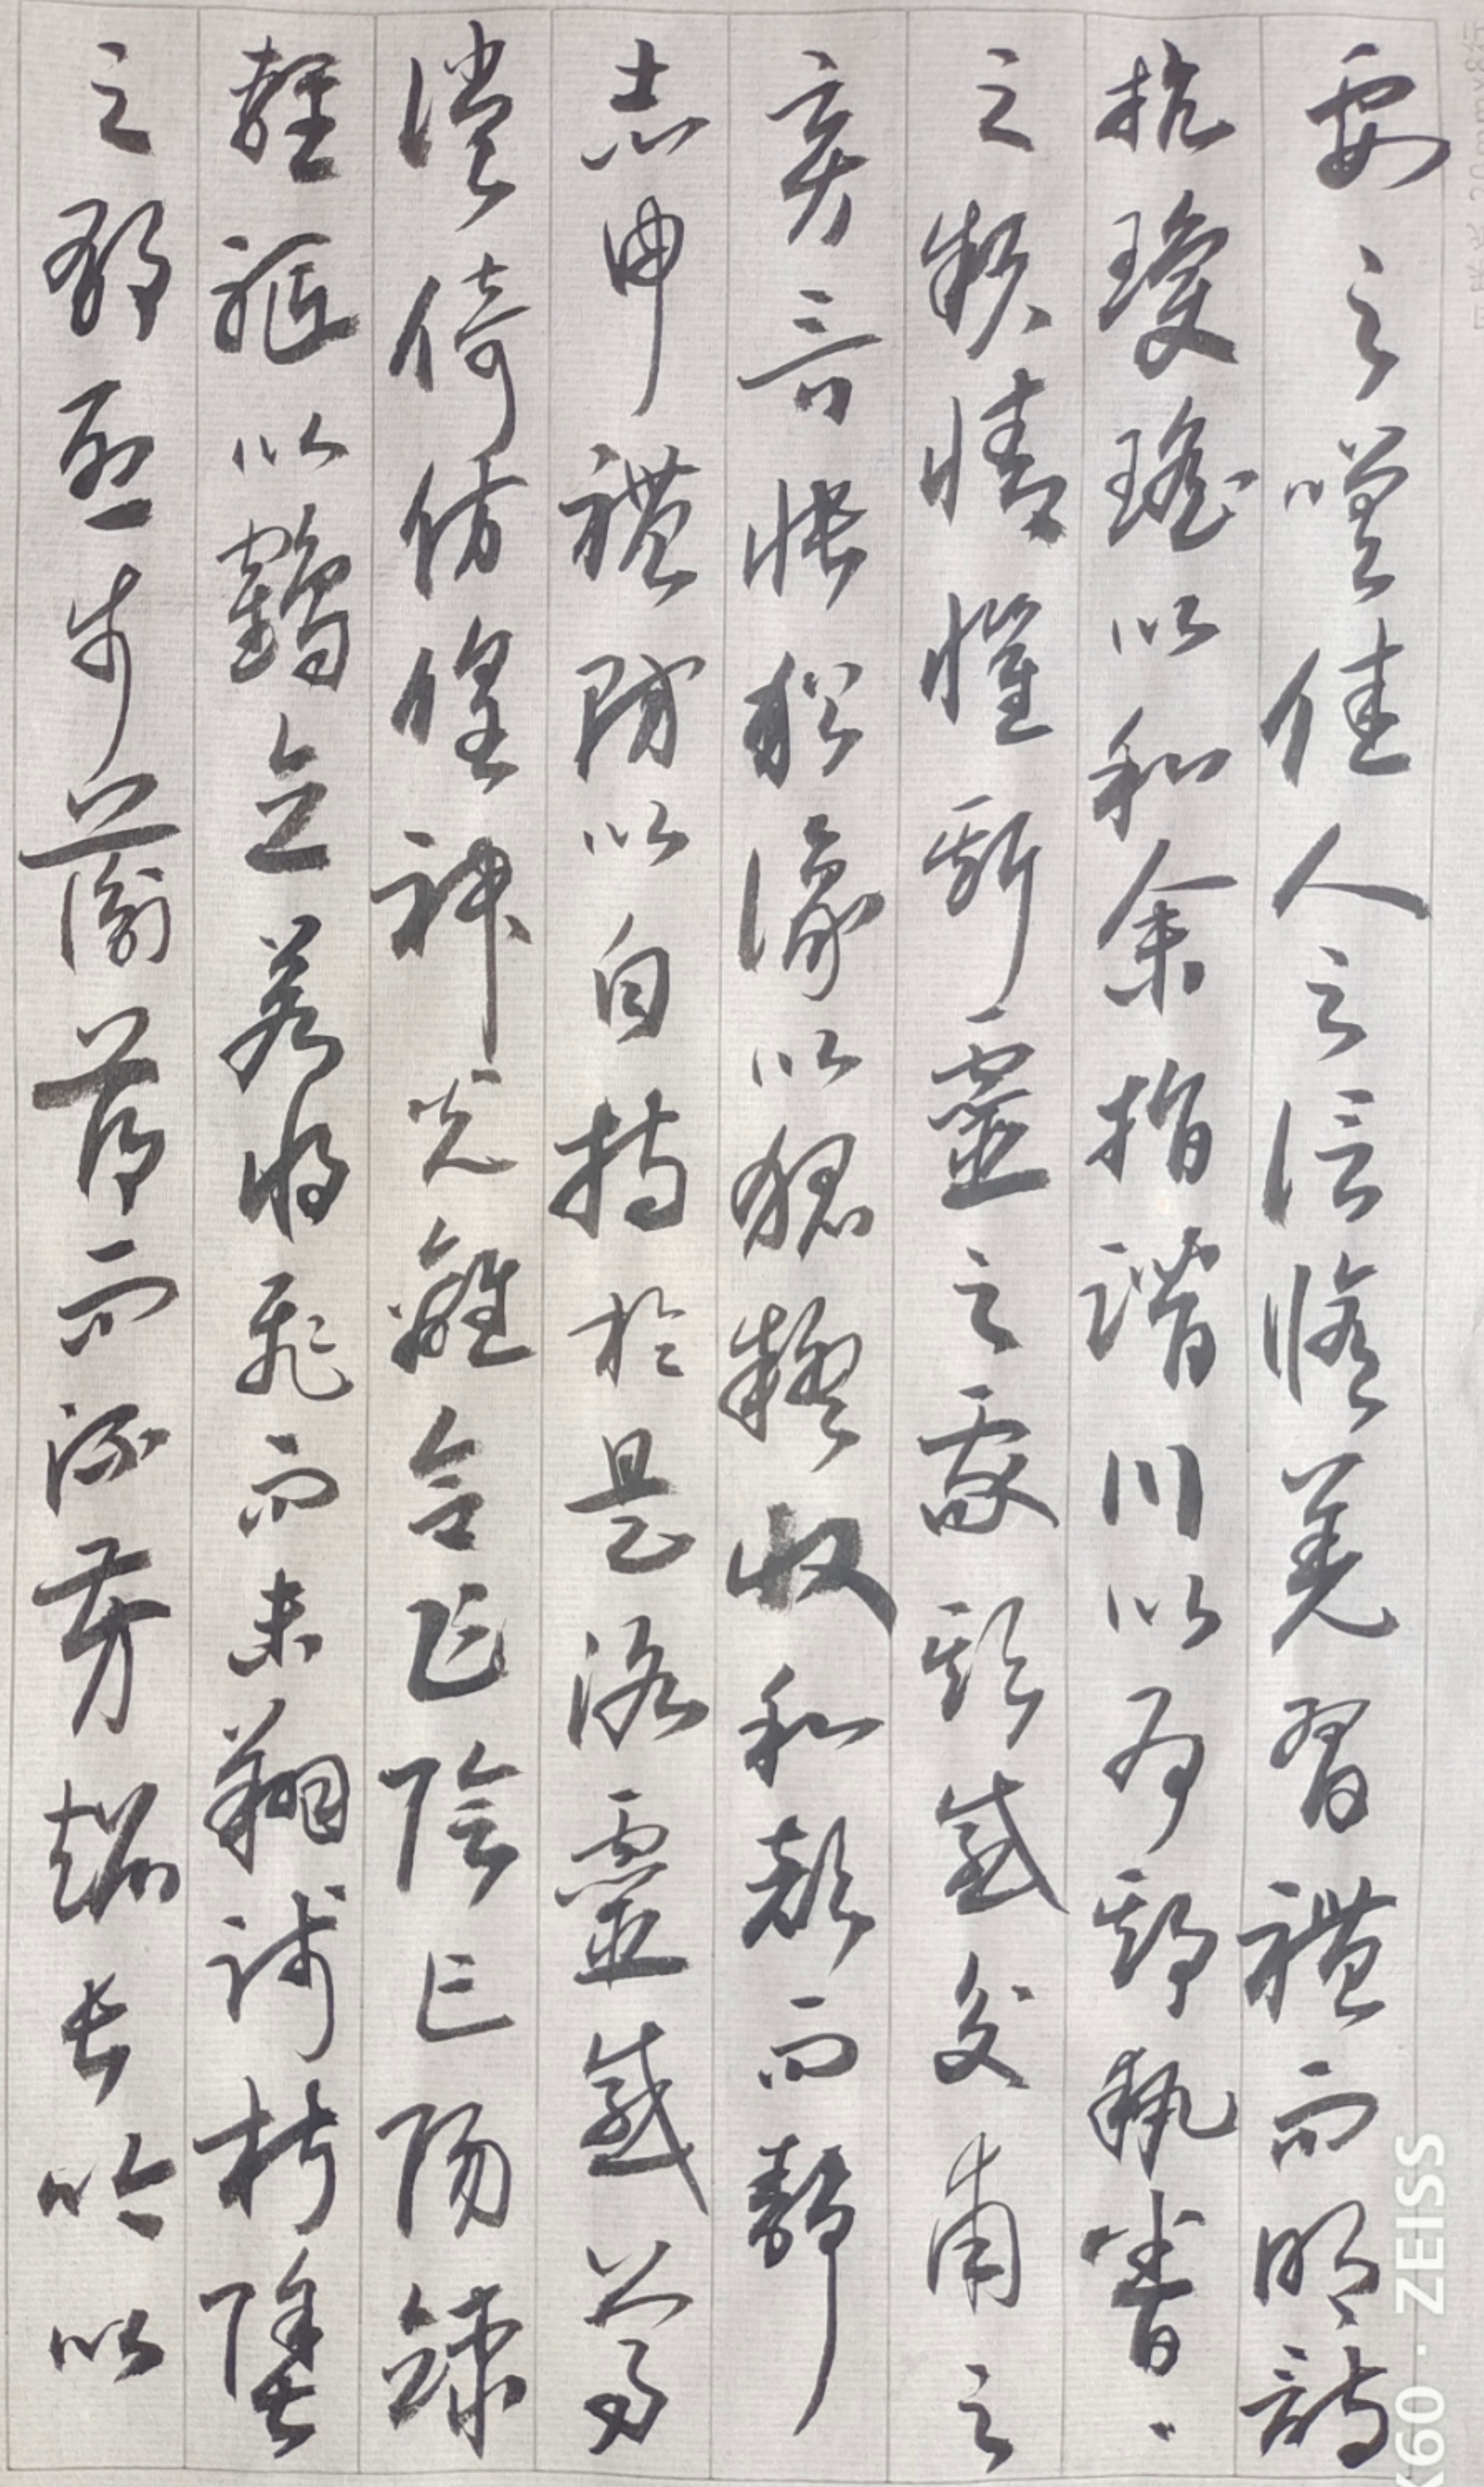 要之嗟佳人之信脩羌習禮而明詩
抗瓊瑤以和余指潛川以為期執眷〻
之款情懼斯靈之我欺感交甫之
棄言悵猶豫以狐疑收和顏而靜
志申禮防以自持於是洛靈感焉
徙倚仿偟神光離合乍陰乍陽竦
輕軀以鶴立若將飛而未翔踐椒塗
之郁烈步蘅薄而流芳超長吟以
X60 · ZEISS